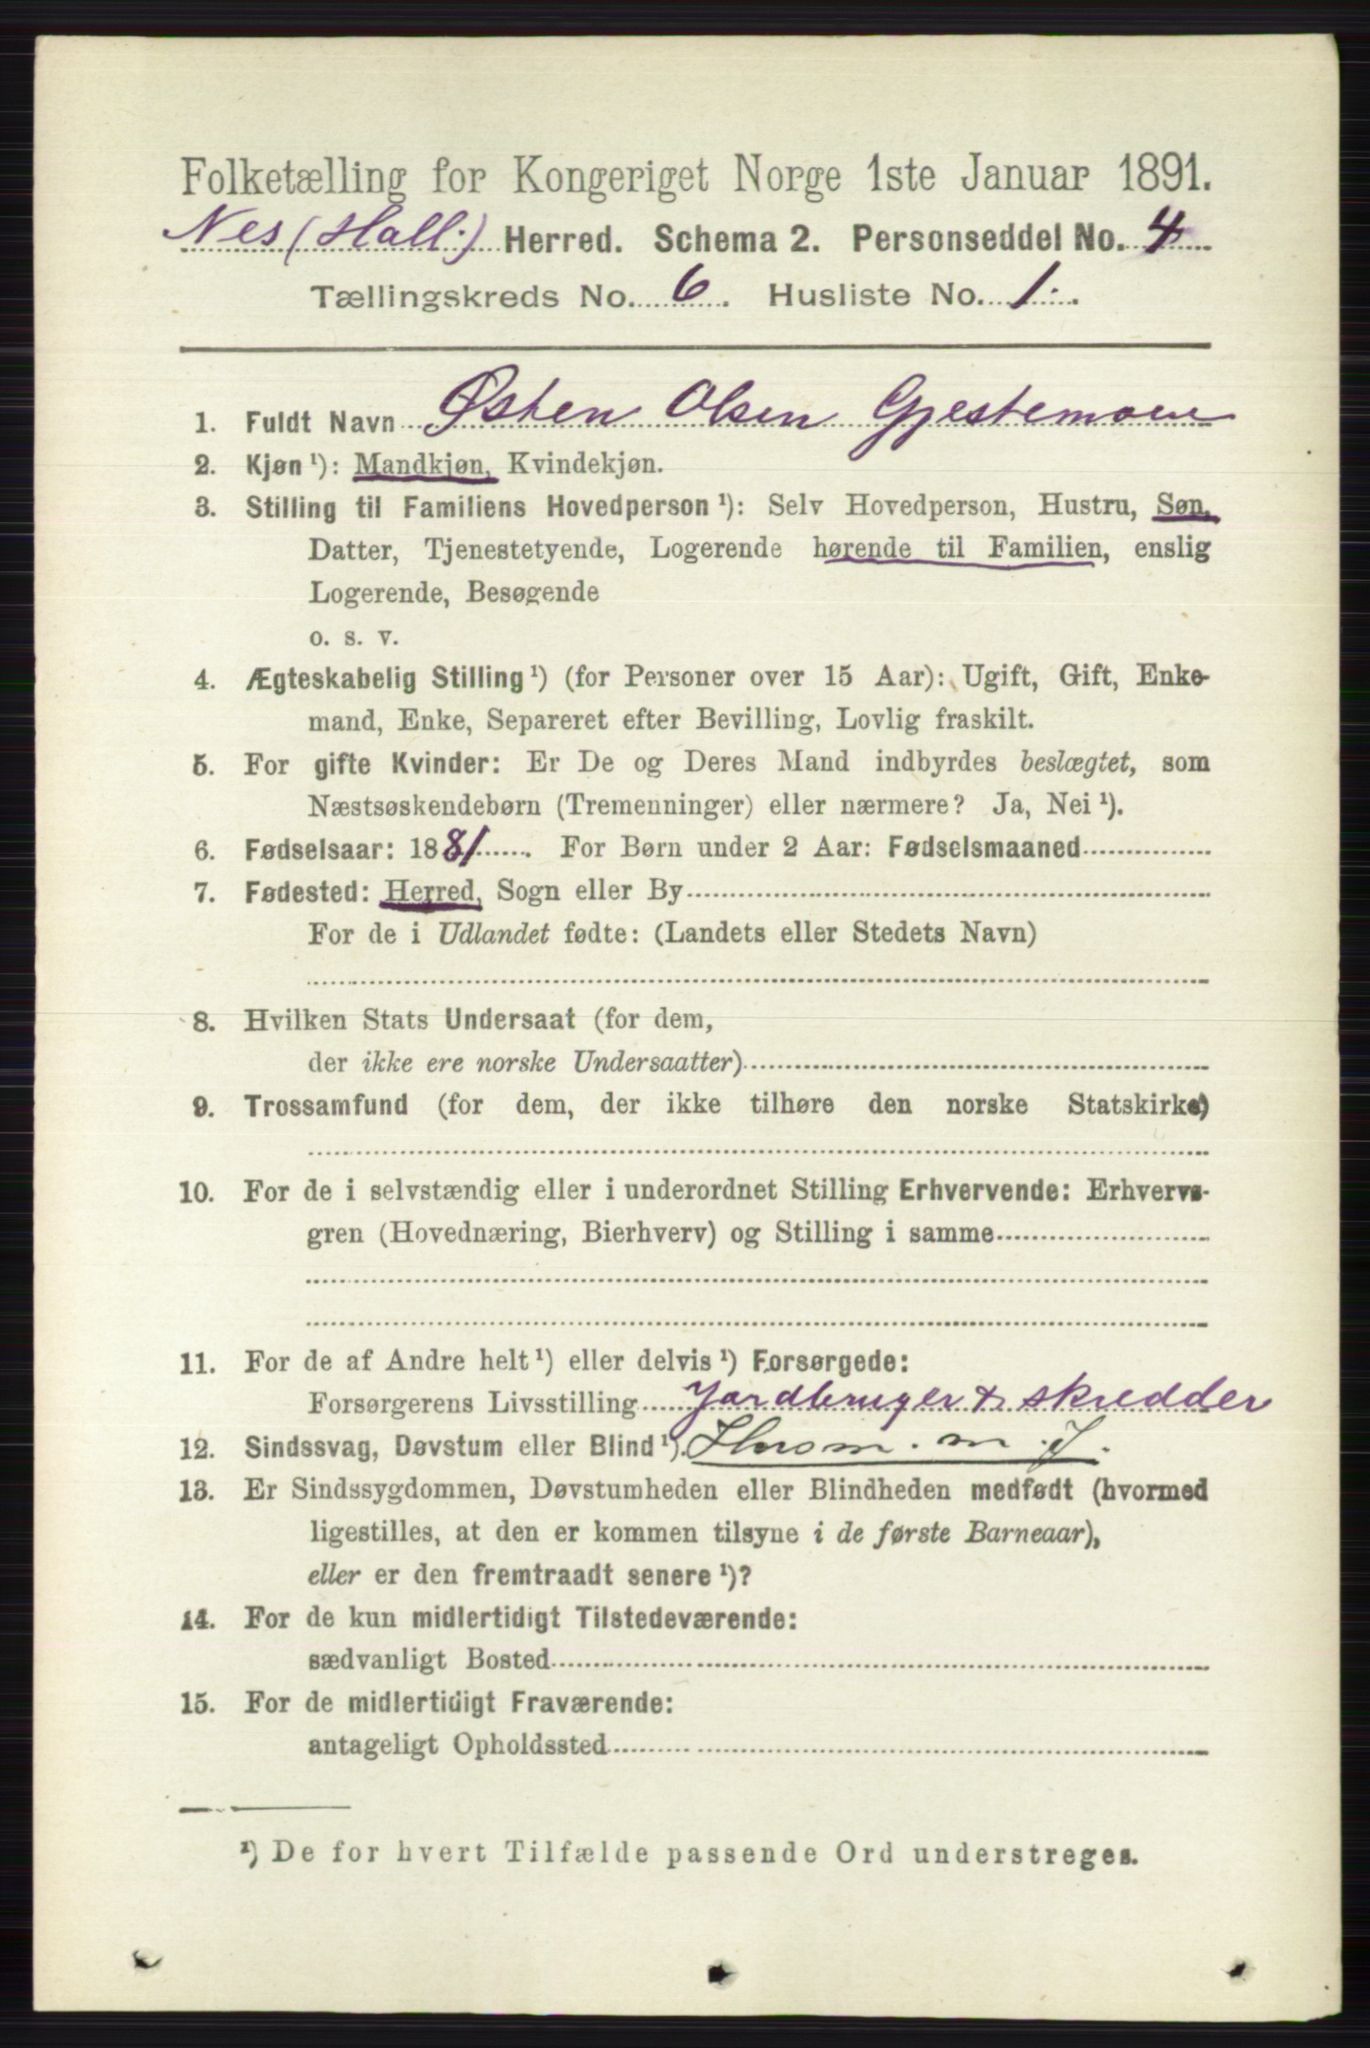 Folketælling for Kongeriget Norge 1ste Januar 1891.
Nes (Hall.) Herred. Schema 2. Personseddel No. 4
Tællingskreds No. 6. Husliste No. 1.
1. Fuldt Navn Østen Olsen Gjestemoen
2. Kjøn ¹): Mandkjøn, Kvindekjøn.
3. Stilling til Familiens Hovedperson ¹): Selv Hovedperson, Hustru, Søn,
Datter, Tjenestetyende, Logerende hørende til Familien, enslig
Logerende, Besøgende
o. s. v.
4. Ægteskabelig Stilling ¹) (for Personer over 15 Aar): Ugift, Gift, Enke-
mand, Enke, Separeret efter Bevilling, Lovlig fraskilt.
5. For gifte Kvinder: Er De og Deres Mand indbyrdes beslægtet, som
Næstsøskendebørn (Tremenninger) eller nærmere? Ja, Nei ¹).
6. Fødselsaar: 1881. For Børn under 2 Aar: Fødselsmaaned
7. Fødested: Herred, Sogn eller By
For de i Udlandet fødte: (Landets eller Stedets Navn)
8. Hvilken Stats Undersaat (for dem,
der ikke ere norske Undersaatter)
9. Trossamfund (for dem, der ikke tilhøre den norske Statskirke)
10. For de i selvstændig eller i underordnet Stilling Erhvervende: Erhvervs-
gren (Hovednæring, Bierhverv) og Stilling i samme
11. For de af Andre helt ¹) eller delvis ¹) Forsørgede:
Forsørgerens Livsstilling Jordbruger & skredder
12. Sindssvag, Døvstum eller Blind ¹). Husm. m. J.
13. Er Sindssygdommen, Døvstumheden eller Blindheden medfødt (hvormed
ligestilles, at den er kommen tilsyne i de første Barneaar),
eller er den fremtraadt senere ¹)?
14. For de kun midlertidigt Tilstedeværende:
sædvanligt Bosted
15. For de midlertidigt Fraværende:
antageligt Opholdssted
¹) De for hvert Tilfælde passende Ord understreges.